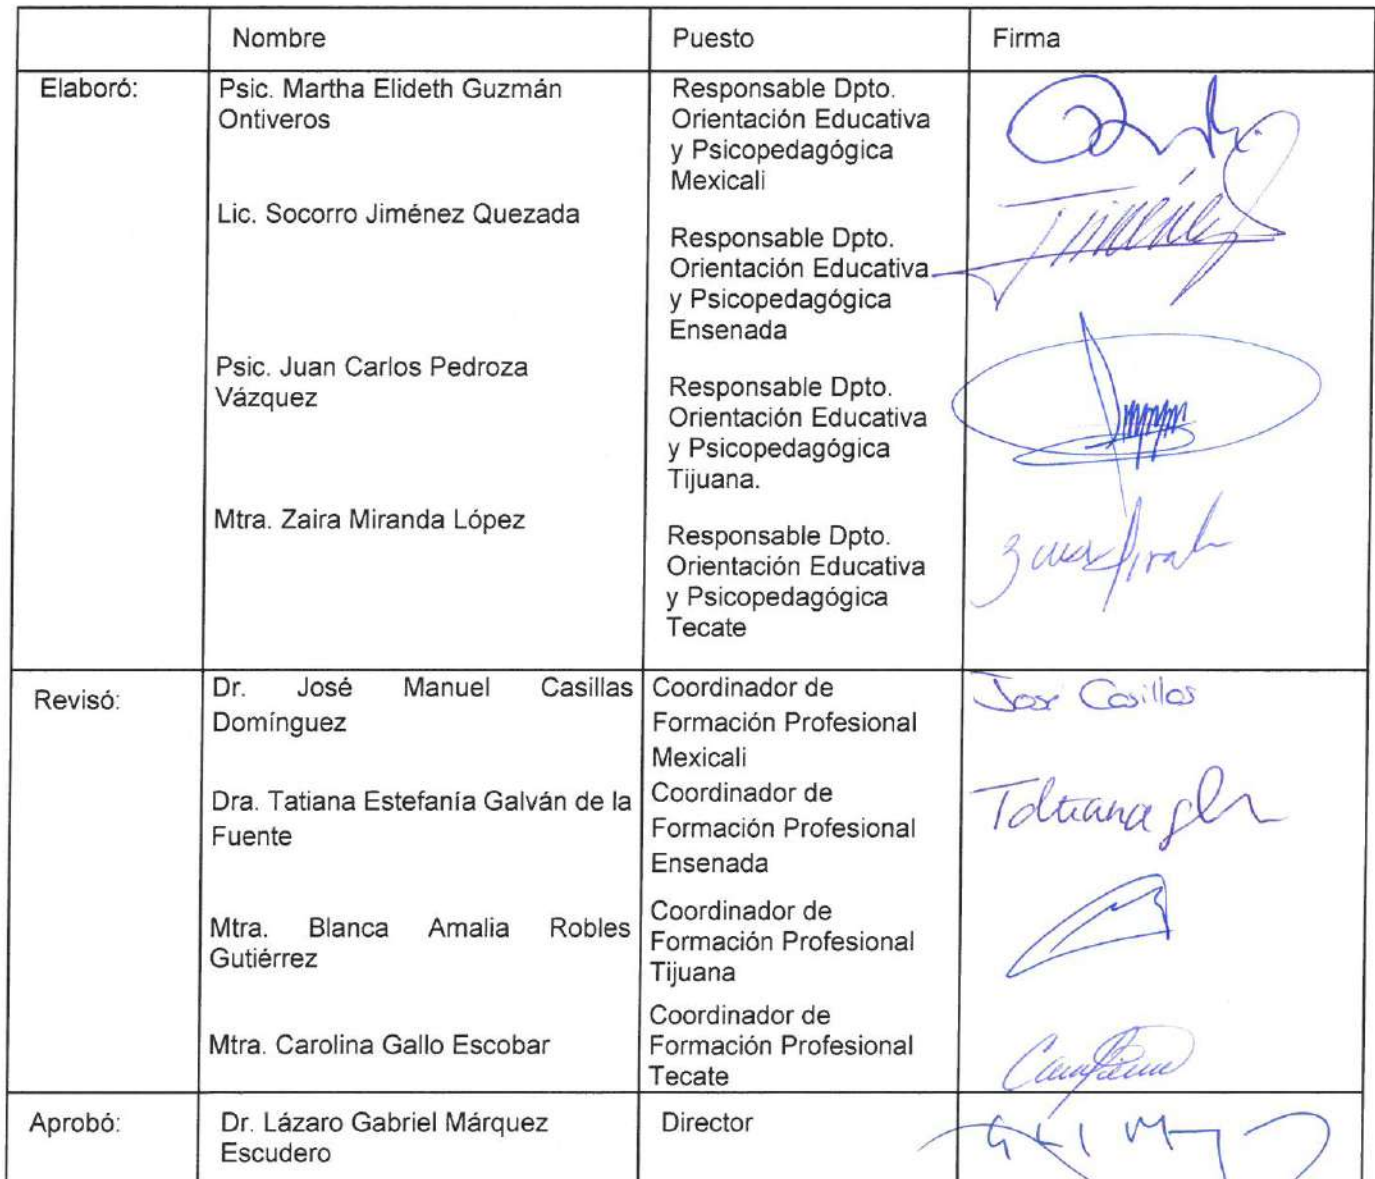 Nombre Puesto Firma
Elaboró: Psic. Martha Elideth Guzmán
Ontiveros
Responsable Dpto.
Orientación Educativa
y Psicopedagógica
Mexicali
Lic. Socorro Jiménez Quezada
Responsable Dpto.
Orientación Educativa
y Psicopedagógica
Ensenada
Jiménez
Psic. Juan Carlos Pedroza
Vázquez
Responsable Dpto.
Orientación Educativa
y Psicopedagógica
Tijuana.
Mtra. Zaira Miranda López
Responsable Dpto.
Orientación Educativa
y Psicopedagógica
Tecate
Revisó: Dr. José Manuel Casillas
Domínguez
Coordinador de
Formación Profesional
Mexicali
José Casillas
Dra. Tatiana Estefanía Galván de la
Fuente
Coordinador de
Formación Profesional
Ensenada
Tatiana
Mtra. Blanca Amalia Robles
Gutiérrez
Coordinador de
Formación Profesional
Tijuana
Mtra. Carolina Gallo Escobar
Coordinador de
Formación Profesional
Tecate
Aprobó: Dr. Lázaro Gabriel Márquez
Escudero
Director